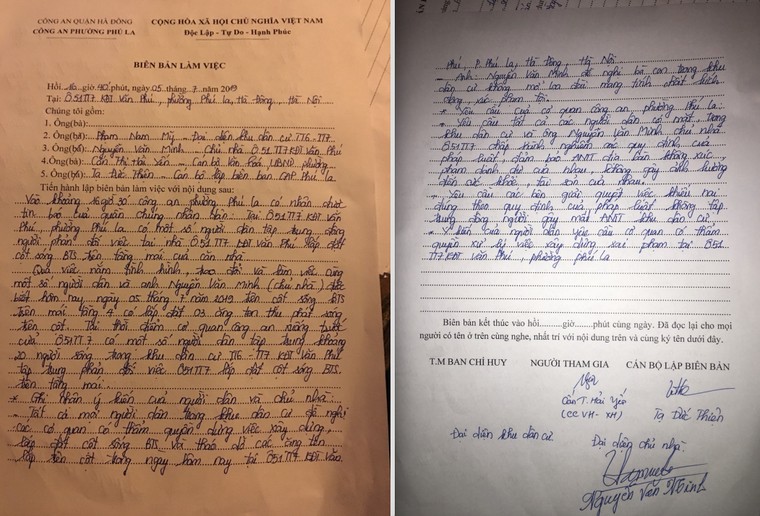 CÔNG AN QUẬN HÀ ĐÔNG
CÔNG AN PHƯỜNG PHÚ LA
CỘNG HÒA XÃ HỘI CHỦ NGHĨA VIỆT NAM
Độc Lập - Tự Do - Hạnh Phúc
BIÊN BẢN LÀM VIỆC
Hồi 16 giờ 40 phút, ngày 05 tháng 7 năm 2019
Tại: Ô51TT7 KĐT Văn Phú, phường Phú La, Hà Đông, Hà Nội
Chúng tôi gồm:
1. Ông(bà):
2. Ông(bà): Phạm Nam Mỹ - Đại diện khu dân cư TT6-TT7
3. Ông(bà): Nguyễn Văn Minh - Chủ nhà Ô51TT7 KĐT Văn Phú
4.Ông(bà): Cấn Thị Hải Yến - Cán bộ Văn hoá UBND phường
5. Ông(bà): Tạ Đức Thiên - Cán bộ lập biên bản CAP Phú La
Tiến hành lập biên bản làm việc với nội dung sau:
Vào khoảng 16 giờ 30 công an phường Phú La có nhận được
tin báo của quần chúng nhân dân: Tại Ô51TT7 KĐT Văn
Phú, phường Phú La có một số người dân tập trung đông
người phản đối việc tại nhà Ô51 TT7 KĐT Văn Phú lắp đặt
cột sóng BTS trên tầng mái của căn nhà.
Quá việc nắm tình hình, trao đổi và làm việc cùng
một số người dân và anh Nguyễn Văn Minh (chủ nhà) được
biết hôm nay, ngày 05 tháng 7 năm 2019 trên cột sóng BTS
trên mái tầng 4 có lắp đặt 03 ăng ten thu phát sóng
trên cột. Tại thời điểm cơ quan công an trước
cửa Ô51TT7 có một số người dân tập trung khoảng
20 người sống trong khu dân cư TT6-TT7 KĐT Văn Phú
tập trung phản đối việc Ô51TT7 lắp đặt cột sóng BTS
trên tầng mái.
* Ghi nhận ý kiến của người dân và chủ nhà:
- Tất cả mọi người dân trong khu dân cư đề nghị
các cơ quan có thẩm quyền dừng việc xây dựng,
lắp đặt cột sóng BTS và tháo dỡ các ăng ten
lắp trên cột trong ngay hôm nay tại Ô51TT7 KĐT Văn
Phú, P. Phú La, Hà Đông, Hà Nội.
- Anh: Nguyễn Văn Minh đề nghị bà con trong khu
dân cư không đe doạ mang tính chất kích
động, xúc phạm tôi.
* Yêu cầu của cơ quan công an phường Phú La:
- Yêu cầu tất cả các người dân có mặt trong
khu dân cư và ông Nguyễn Văn Minh chủ nhà
Ô51TT7 chấp hành nghiêm các quy định của
pháp luật, đảm bảo ANTT địa bàn không xúc
phạm danh dự của nhau, không gây ảnh hưởng
đến sức khoẻ, tài sản của nhau.
- Yêu cầu các bên giải quyết việc khiếu nại
đúng theo quy định của pháp luật không tập
trung đông người gây mất ANTT khu dân cư.
* Ý kiến của người dân yêu cầu cơ quan có thẩm
quyền xử lý việc xây dựng sai phạm tại Ô51
TT7 KĐT Văn Phú, phường Phú La
Biên bản kết thúc vào hồi......giờ......phút cùng ngày. Đã đọc lại cho mọi
người có tên ở trên cùng nghe, nhất trí với nội dung trên và cùng ký tên dưới đây.
T.M BAN CHỈ HUY NGƯỜI THAM GIA CÁN BỘ LẬP BIÊN BẢN
Cấn T. Hải Yến
(CC VH-XH)
Tạ Đức Thiên
Đại diện khu dân cư
Đại diện chủ nhà
Nguyễn Văn Minh